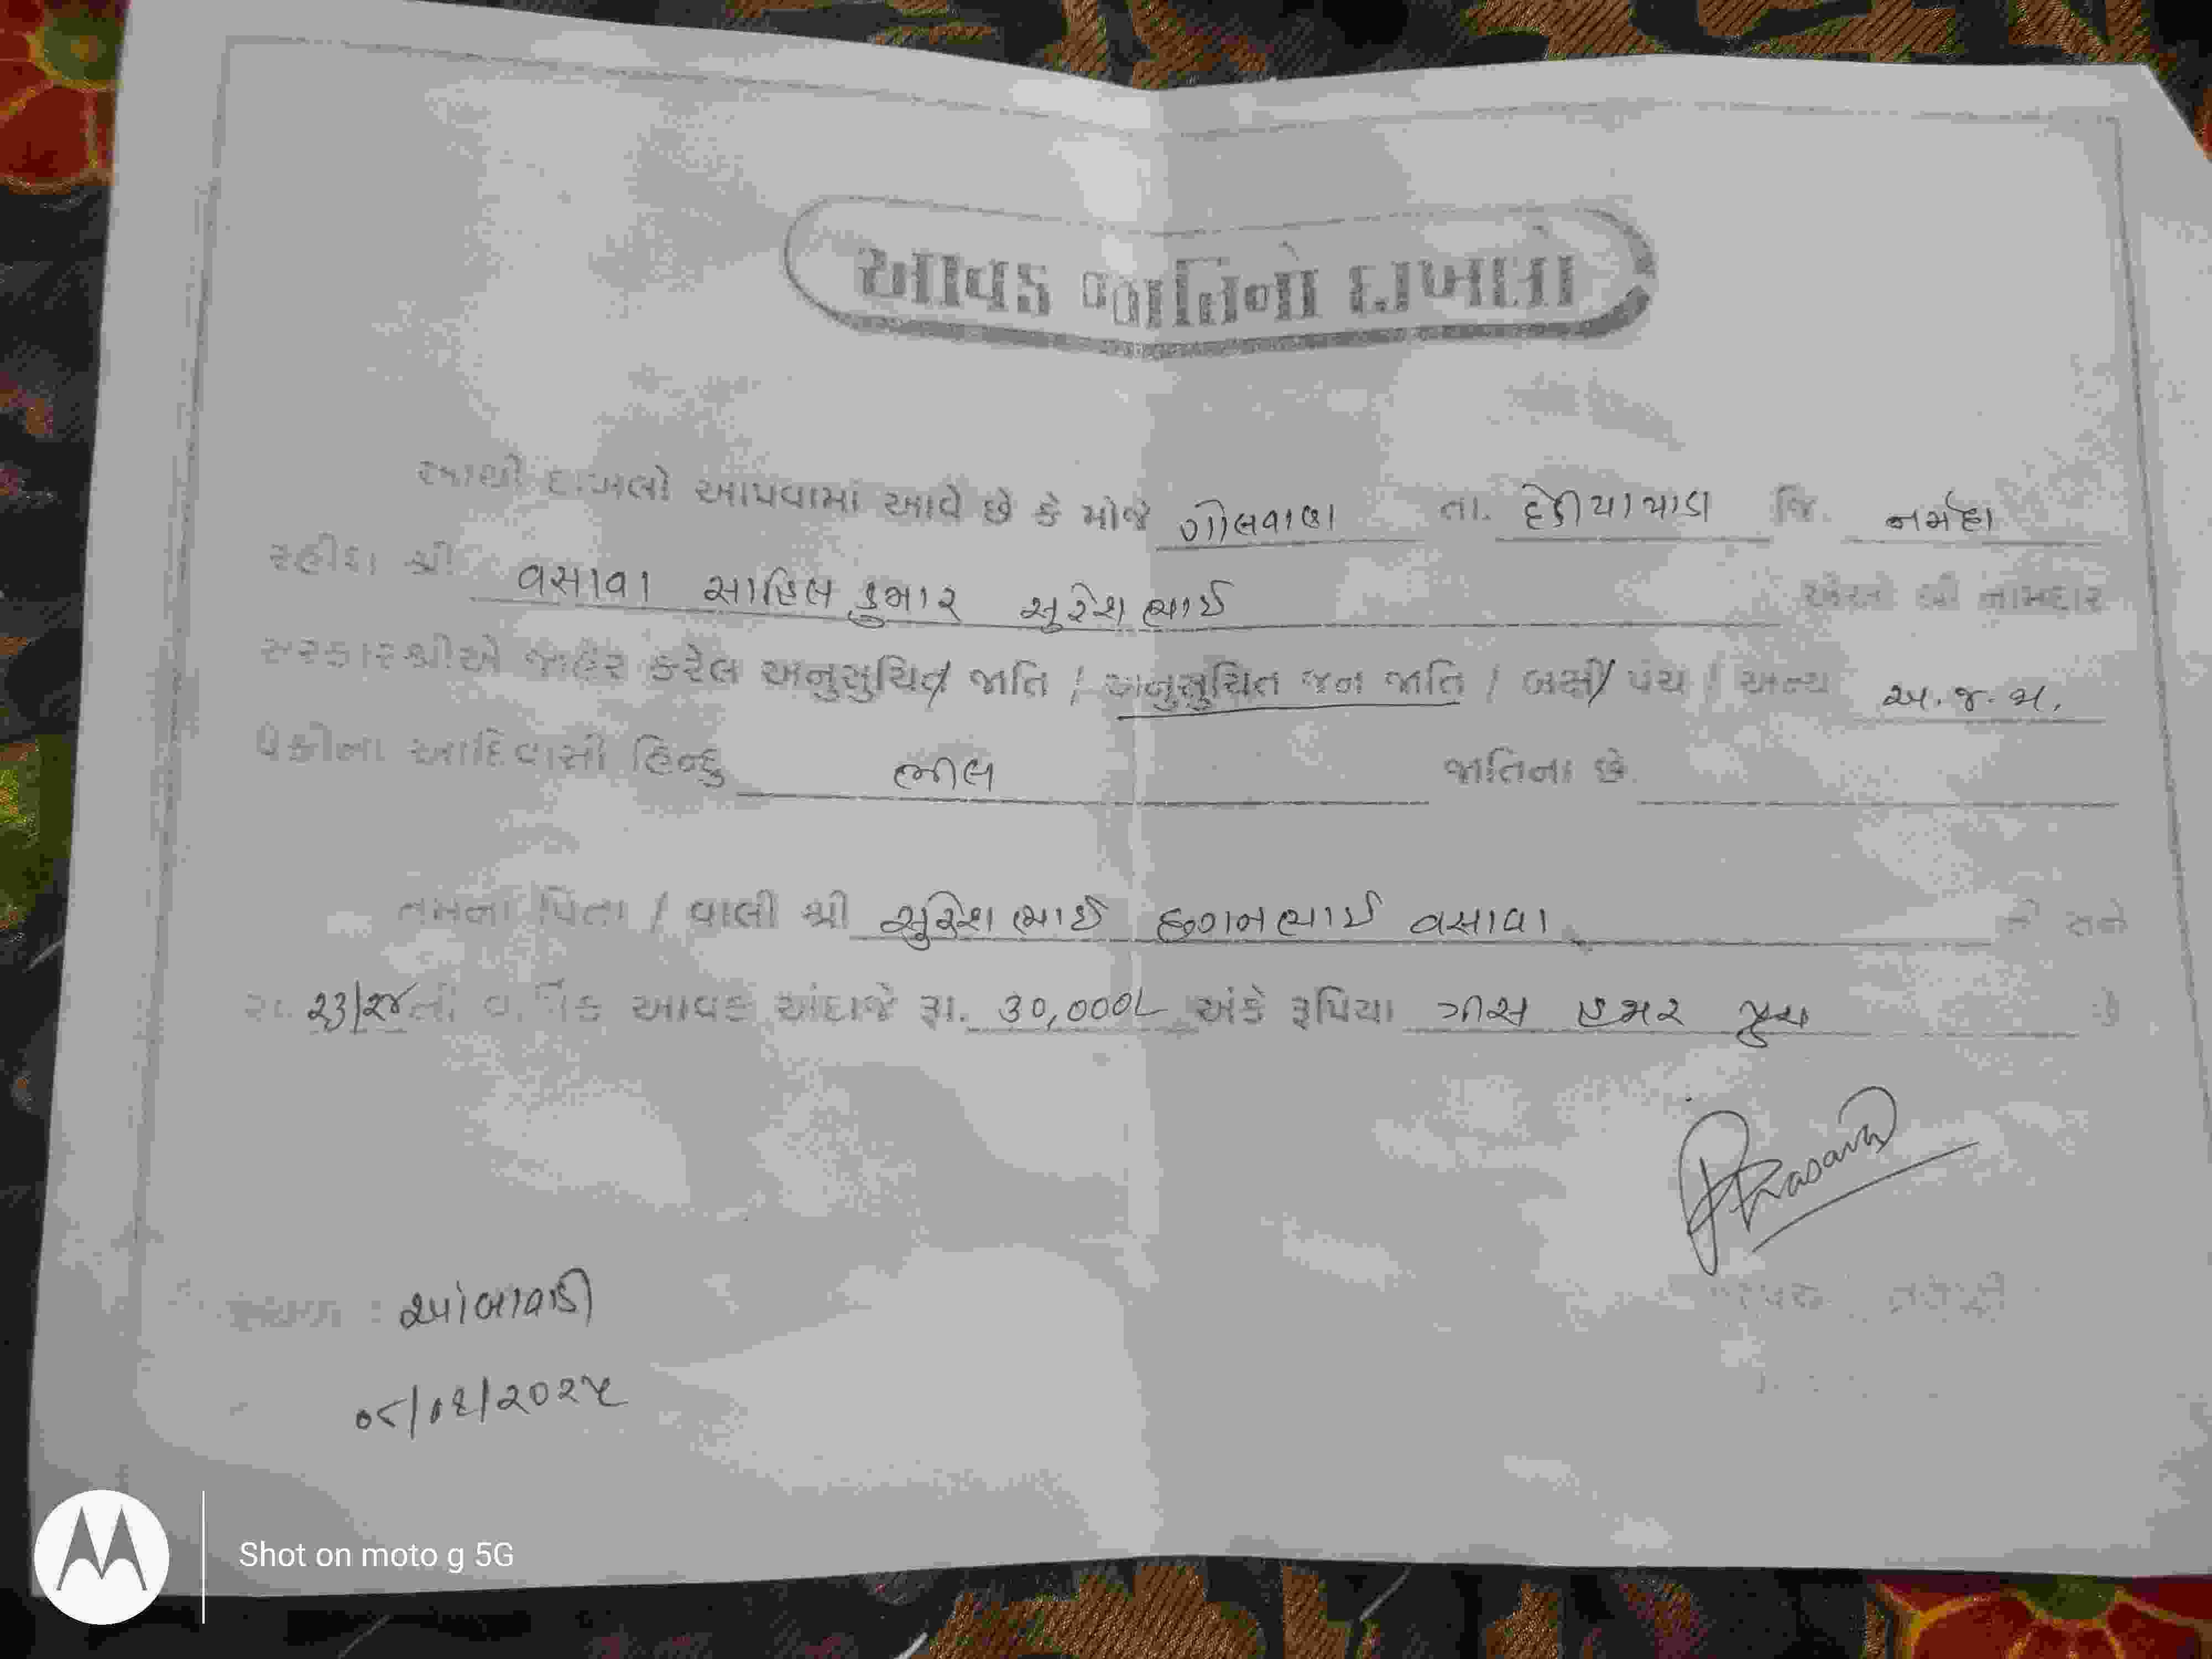 આવક જાતિનો દાખલો
આથી દાખલો આપવામાં આવે છે કે મોજે ગોલવાણ તા. દેડીયાપાડા જિ. નર્મદા
રહીશ શ્રી વસાવા સાહિલ કુમાર સુરેશભાઈ નામદાર
સરકારશ્રીએ જાહેર કરેલ અનુસુચિત જાતિ / અનુસુચિત જન જાતિ / બક્ષી પંચ / અન્ય અ.જ.જા.
પૈકીના આદિવાસી હિન્દુ ભીલ જાતિના છે.
તેમના પિતા / વાલી શ્રી સુરેશભાઈ છગનભાઈ વસાવા ની સને
૨૦ ૨૩/૨૪ની વાર્ષિક આવક અંદાજે રૂા. 30,000/- અંકે રૂપિયા ત્રીસ હજાર પુરા છે
Vasava
સ્થળ : આંબાવાડી
સરપંચ / તલાટી
૦૮/૦૬/૨૦૨૫
Shot on moto g 5G